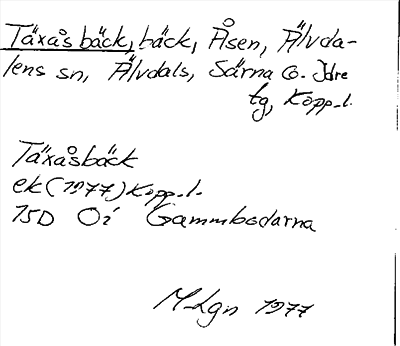 Täxåsbäck, bäck, Åsen, Älvda-
lens sn, Älvdals, Särna o. Idre
tg, Kopp.l.
Täxåsbäck
ek (1977) Kopp.l.
15D Öi Gammbodarna
M Lgn 1977